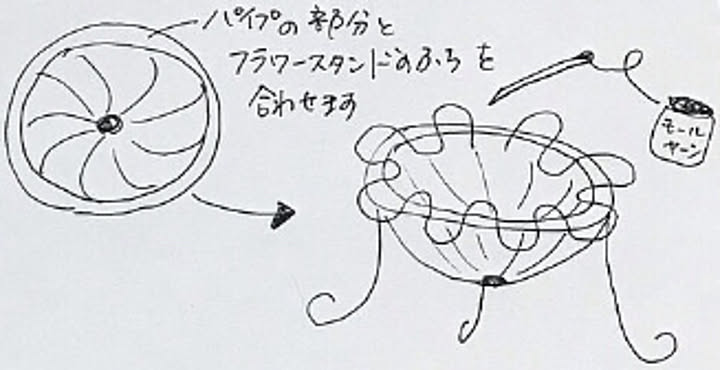 パイプの部分と
フラワースタンドのふちを
合わせます
モール
ヤーン